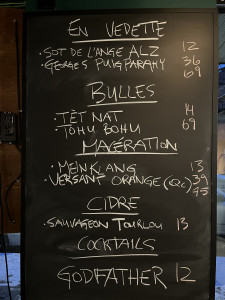 EN VEDETTE
·SOT DE L'ANGE ALZ 12
·GEORGES PUIG PARAHY 36
69
BULLES
·TÊT NAT 14
·TOHU BOHU 69
MACÉRATION
·MEINKLANG 13
·VERSANT ORANGE (QC) 39
75
CIDRE
·SAUVAGEON TOURLOU 13
COCKTAILS
GODFATHER 12